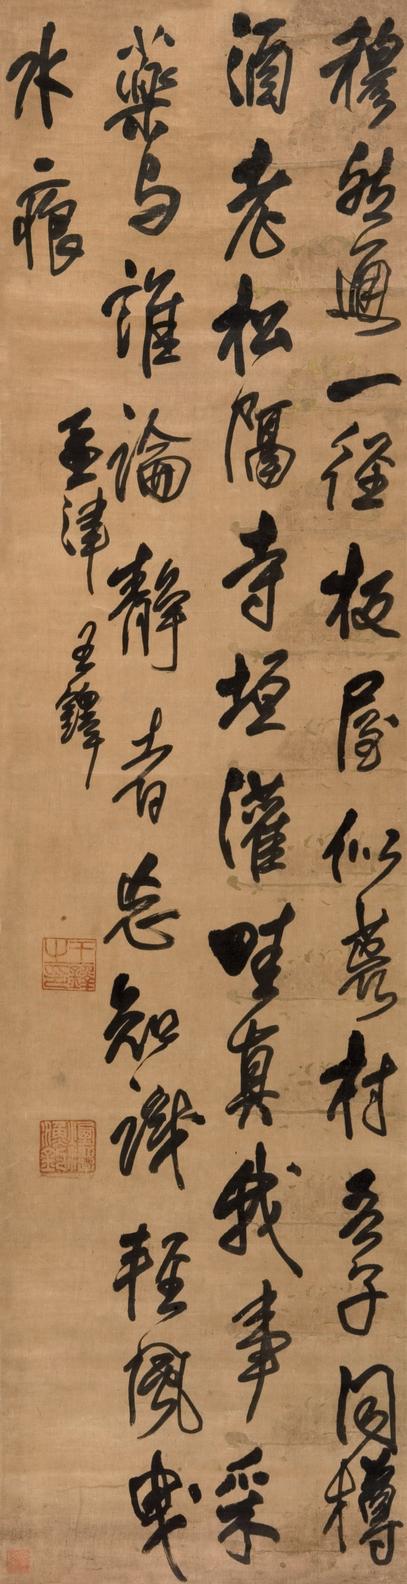 穆然通一徑板屋似荒村吾子同樽
酒老松隔寺垣灌畦真我事采
藥与誰論靜者忘知識輕風曳
水痕
孟津王鐸
王鐸之印